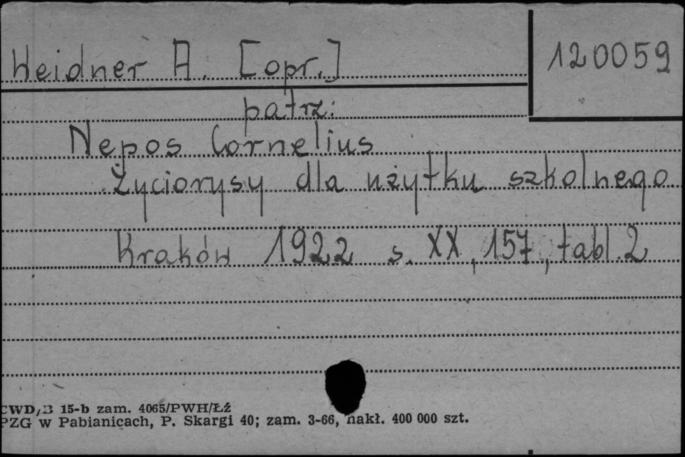 Heidner A. [opr.]
120059
patrz:
Nepos Cornelius
Życiorysy dla użytku szkolnego
Kraków 1922 s. XX, 157, tabl. 2
CWD/B 15-b zam. 4065/PWH/Łź
PZG w Pabianicach, P. Skargi 40; zam. 3-66, nakł. 400 000 szt.